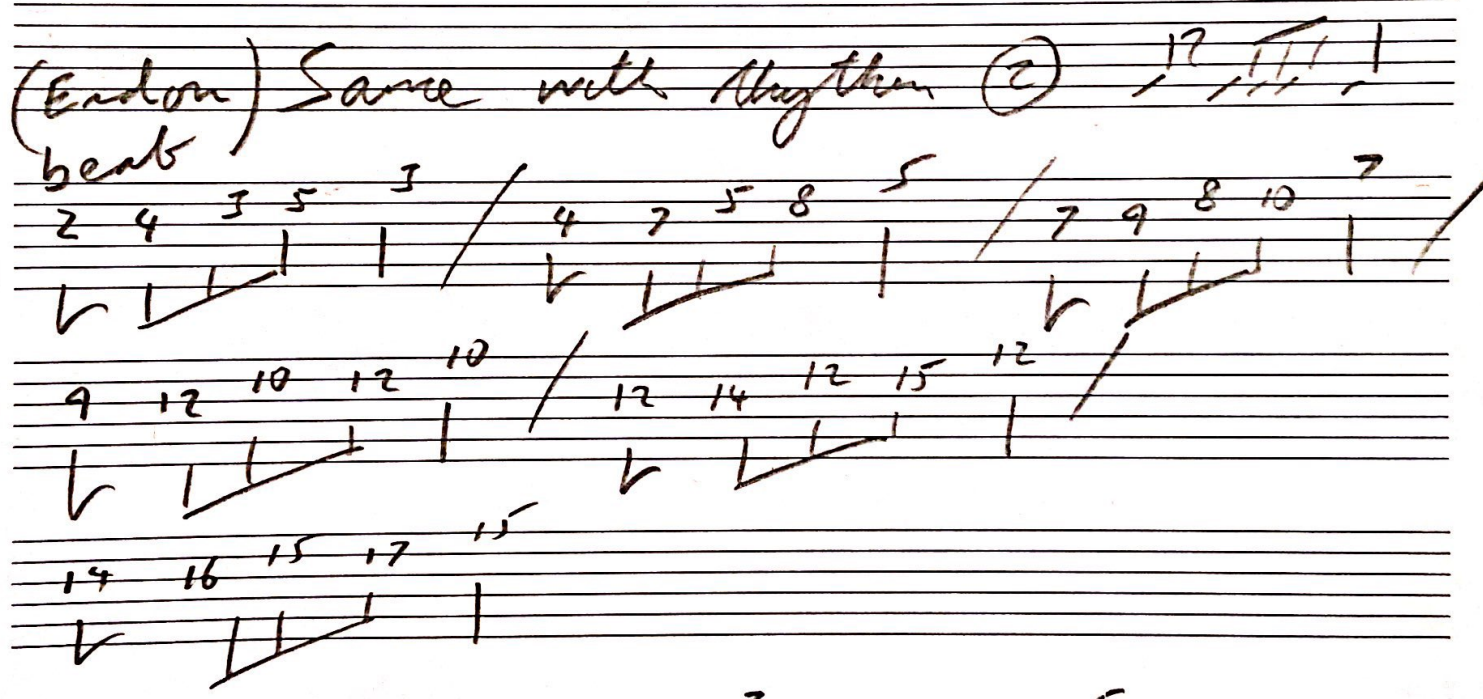 (End on) Same with Rhythm ②
beat
2 4 3 5 3 / 4 7 5 8 5 / 7 9 8 10 7 /
9 12 10 12 10 / 12 14 12 15 12 /
14 16 15 17 15